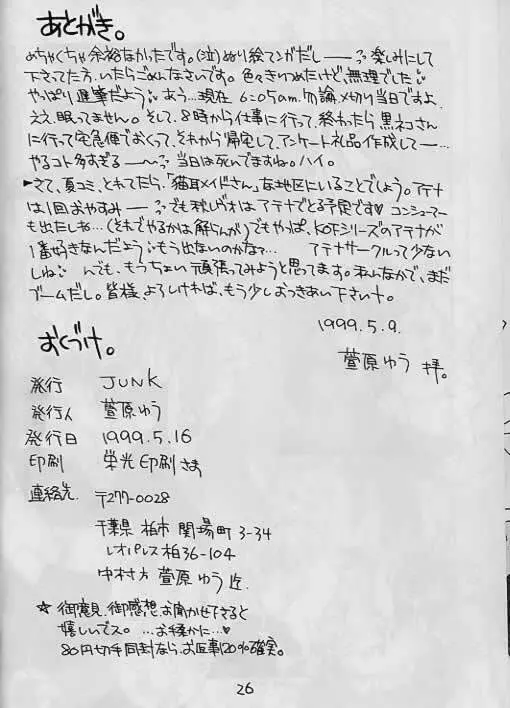 あとがき。
めちゃくちゃ余裕なかったです。(泣)ぬり絵マンガだし――?楽しみにして
下さってた方、いたらごめんなさいです。色々きりつめたけど、無理でした
やっぱり遅筆だよう あう…現在 6:05am.勿論〆切り当日ですよ
ええ、眠ってません。そして、8時から仕事に行って、終わったら黒ネコさん
に行って宅急便でおくって、それから帰宅して、アンケート礼品作成して――…
やるコト多すぎる――〜? 当日は死んでますね。ハイ。
►さて、夏コミ、とれてたら、「猫耳メイドさん」な地区にいることでしょう。アテナ
は1回おやすみ――? でも秋レヴォはアテナでとる予定です♥ コンシューマー
も出たしね…(それでやるかは解らんが)でもやっぱ、KOFシリーズのアテナが
1番好きなんだよう もう出ないのかなァ… アテナサークルって少ない
しね んでも、もうちょい頑張ってみようと思ってます。私いなかで、まだ
ブームだし。皆様、よろしければ、もう少しおつきあい下さい。
1999.5.9.
萱原ゆう 拝。
おくづけ。
発行 JUNK
発行人 萱原ゆう
発行日 1999.5.16
印刷 栄光印刷さま
連絡先 〒277-0028
千葉県 柏市 関場町 3-34
レオパレス柏36-104
中村方 萱原ゆう迄.
☆ 御意見、御感想、お聞かせ下さると
嬉しいでス。…お手柔かに…♥
80円切手同封なら、お返事120%確実。
26